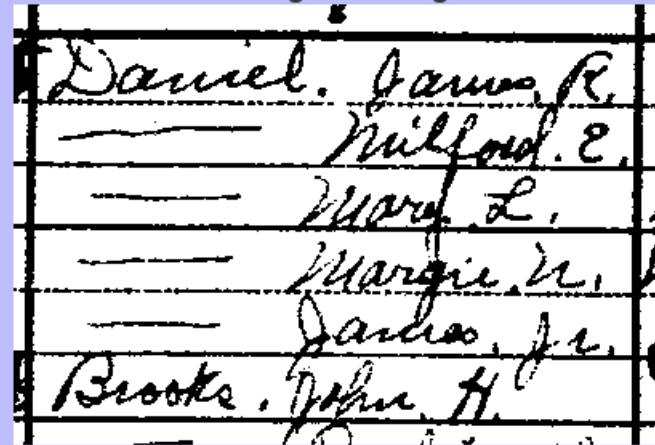 Daniel. James. R.
— Milford. E.
— Mary L.
— Margie. N.
— James, Jr.
Brooks. John H.